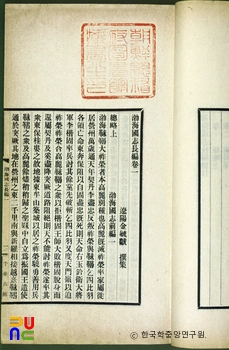 渤海國志長編卷一
遼陽金毓黻 撰集
渤海國志前編一
總略上
渤海靺鞨大祚榮者本高麗別種也高麗既滅祚榮率家屬徙
居營州萬歲通天年契丹李盡忠反叛祚榮與靺鞨乞四比羽
各領亡命東奔保阻以自固盡忠既死則天命右玉鈐衛大將
軍李楷固率兵討其餘黨先破斬乞四比羽又度天門嶺以迫
祚榮祚榮合高麗靺鞨之衆以拒楷固王師大敗楷固脫身而
還屬契丹及奚盡降突厥道路阻絕則天不能討祚榮遂率其
衆東保桂婁之故地據東牟山築城以居之祚榮驍勇善用兵
靺鞨之衆及高麗餘燼稍稍歸之聖曆中自立爲振國王遣使
通於突厥其地在營州之東二千里南與新羅相接越熹靺鞨
ⓒ 한국학중앙연구원